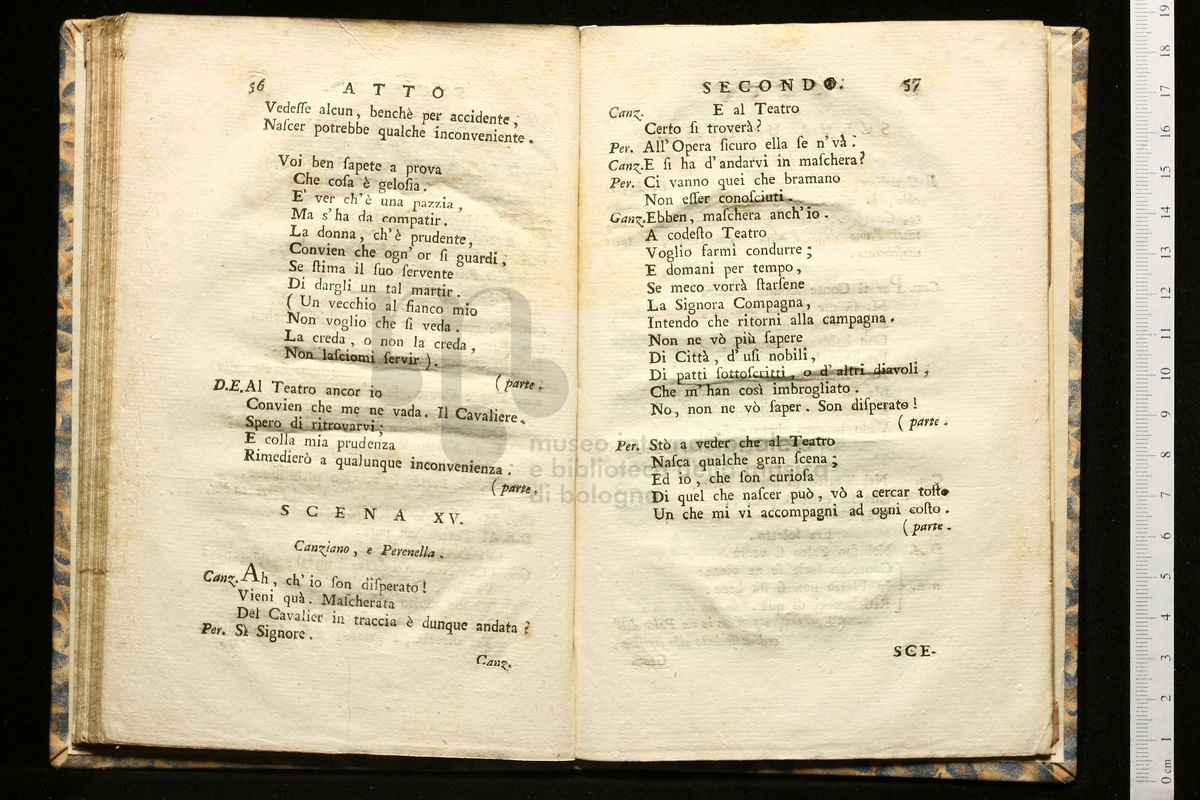 56 ATTO
Vedeſſe alcun, benchè per accidente,
Naſcer potrebbe qualche inconveniente.
Voi ben ſapete a prova
Che coſa è geloſia.
E' ver ch'è una pazzia,
Ma s'ha da compatir.
La donna, ch'è prudente,
Convien che ogn'or ſi guardi,
Se ſtima il ſuo ſervente
Di dargli un tal martir.
(Un vecchio al fianco mio
Non voglio che ſi veda.
La creda, o non la creda,
Non laſciomi ſervir).
(parte.
D.E. Al Teatro ancor io
Convien che me ne vada. Il Cavaliere.
Spero di ritrovarvi;
E colla mia prudenza
Rimedierò a qualunque inconvenienza.
(parte.
SCENA XV.
Canziano, e Perenella.
Canz. Ah, ch'io ſon diſperato!
Vieni quà. Maſcherata
Del Cavalier in traccia è dunque andata?
Per. Sì Signore.
Canz.
SECONDO. 57
Canz. E al Teatro
Certo ſi troverà?
Per. All'Opera ſicuro ella ſe n'và.
Canz. E ſi ha d'andarvi in maſchera?
Per. Ci vanno quei che bramano
Non eſſer conoſciuti.
Ganz. Ebben, maſchera anch'io.
A codeſto Teatro
Voglio farmi condurre;
E domani per tempo,
Se meco vorrà ſtarſene
La Signora Compagna,
Intendo che ritorni alla campagna.
Non ne vò più ſapere
Di Città, d'uſi nobili,
Di patti ſottoſcritti, o d'altri diavoli,
Che m'han così imbrogliato.
No, non ne vò ſaper. Son diſperato!
(parte.
Per. Stò a veder che al Teatro
Naſca qualche gran ſcena;
Ed io, che ſon curioſa
Di quel che naſcer può, vò a cercar toſto
Un che mi vi accompagni ad ogni coſto.
(parte.
SCE-
museo
e biblioteca della musica
di bologna
0 cm 1 2 3 4 5 6 7 8 9 10 11 12 13 14 15 16 17 18 19